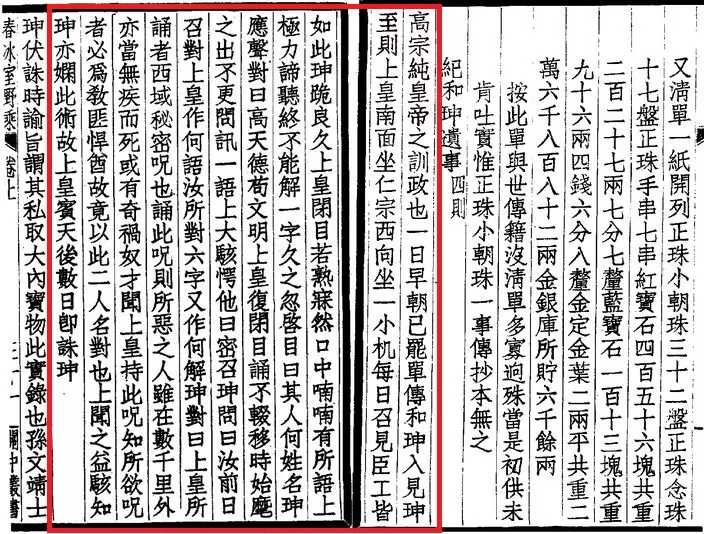 又清單一紙開列正珠小朝珠三十二盤正珠念珠
十七盤正珠手串七串紅寶石四百五十六塊共重
二百二十七兩七分七釐藍寶石一百十三塊共重
九十六兩四錢六分八釐金定金葉二兩平共重二
萬六千八百八十二兩金銀庫所貯六千餘兩
按此單與世傳籍沒清單多寡迥殊當是初供未
肯吐實惟正珠小朝珠一事傳抄本無之
紀和珅遺事四則
高宗純皇帝之訓政也一日早朝已罷單傳和珅入見珅
至則上皇南面坐仁宗西向坐一小杌每日召見臣工皆
如此珅跪良久上皇閉目若熟寐然口中喃喃有所語上
極力諦聽終不能解一字久之忽啓目曰其人何姓名珅
應聲對曰高天德苟文明上皇復閉目誦不輟移時始麾
之出不更問訊一語上大駭愕他日密召珅問曰汝前日
召對上皇作何語汝所對六字又作何解珅對曰上皇所
誦者西域秘密呪也誦此呪則所惡之人雖在數千里外
亦當無疾而死或有奇禍奴才聞上皇持此呪知所欲呪
者必爲敎匪悍酋故竟以此二人名對也上聞之益駭知
珅亦嫻此術故上皇賓天後數日卽誅珅
珅伏誅時諭旨謂其私取大內寶物此實錄也孫文靖士
春冰室野乘 卷上
關中叢書